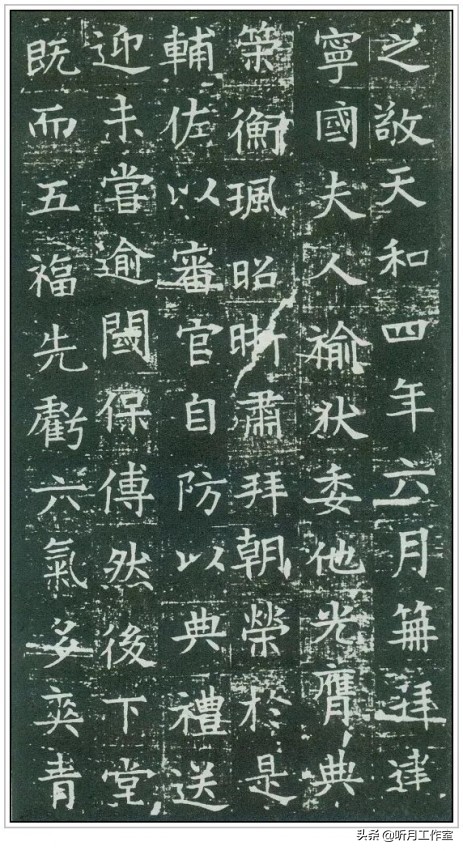 之敬天和四年六月笧拜建
寧國夫人褕狄委他光膺典
策衡珮昭晰肅拜朝榮於是
輔佐以審官自防以典禮送
迎未嘗逾閾保傅然後下堂
既而五福先虧六氣多爽青
头条@听月工作室